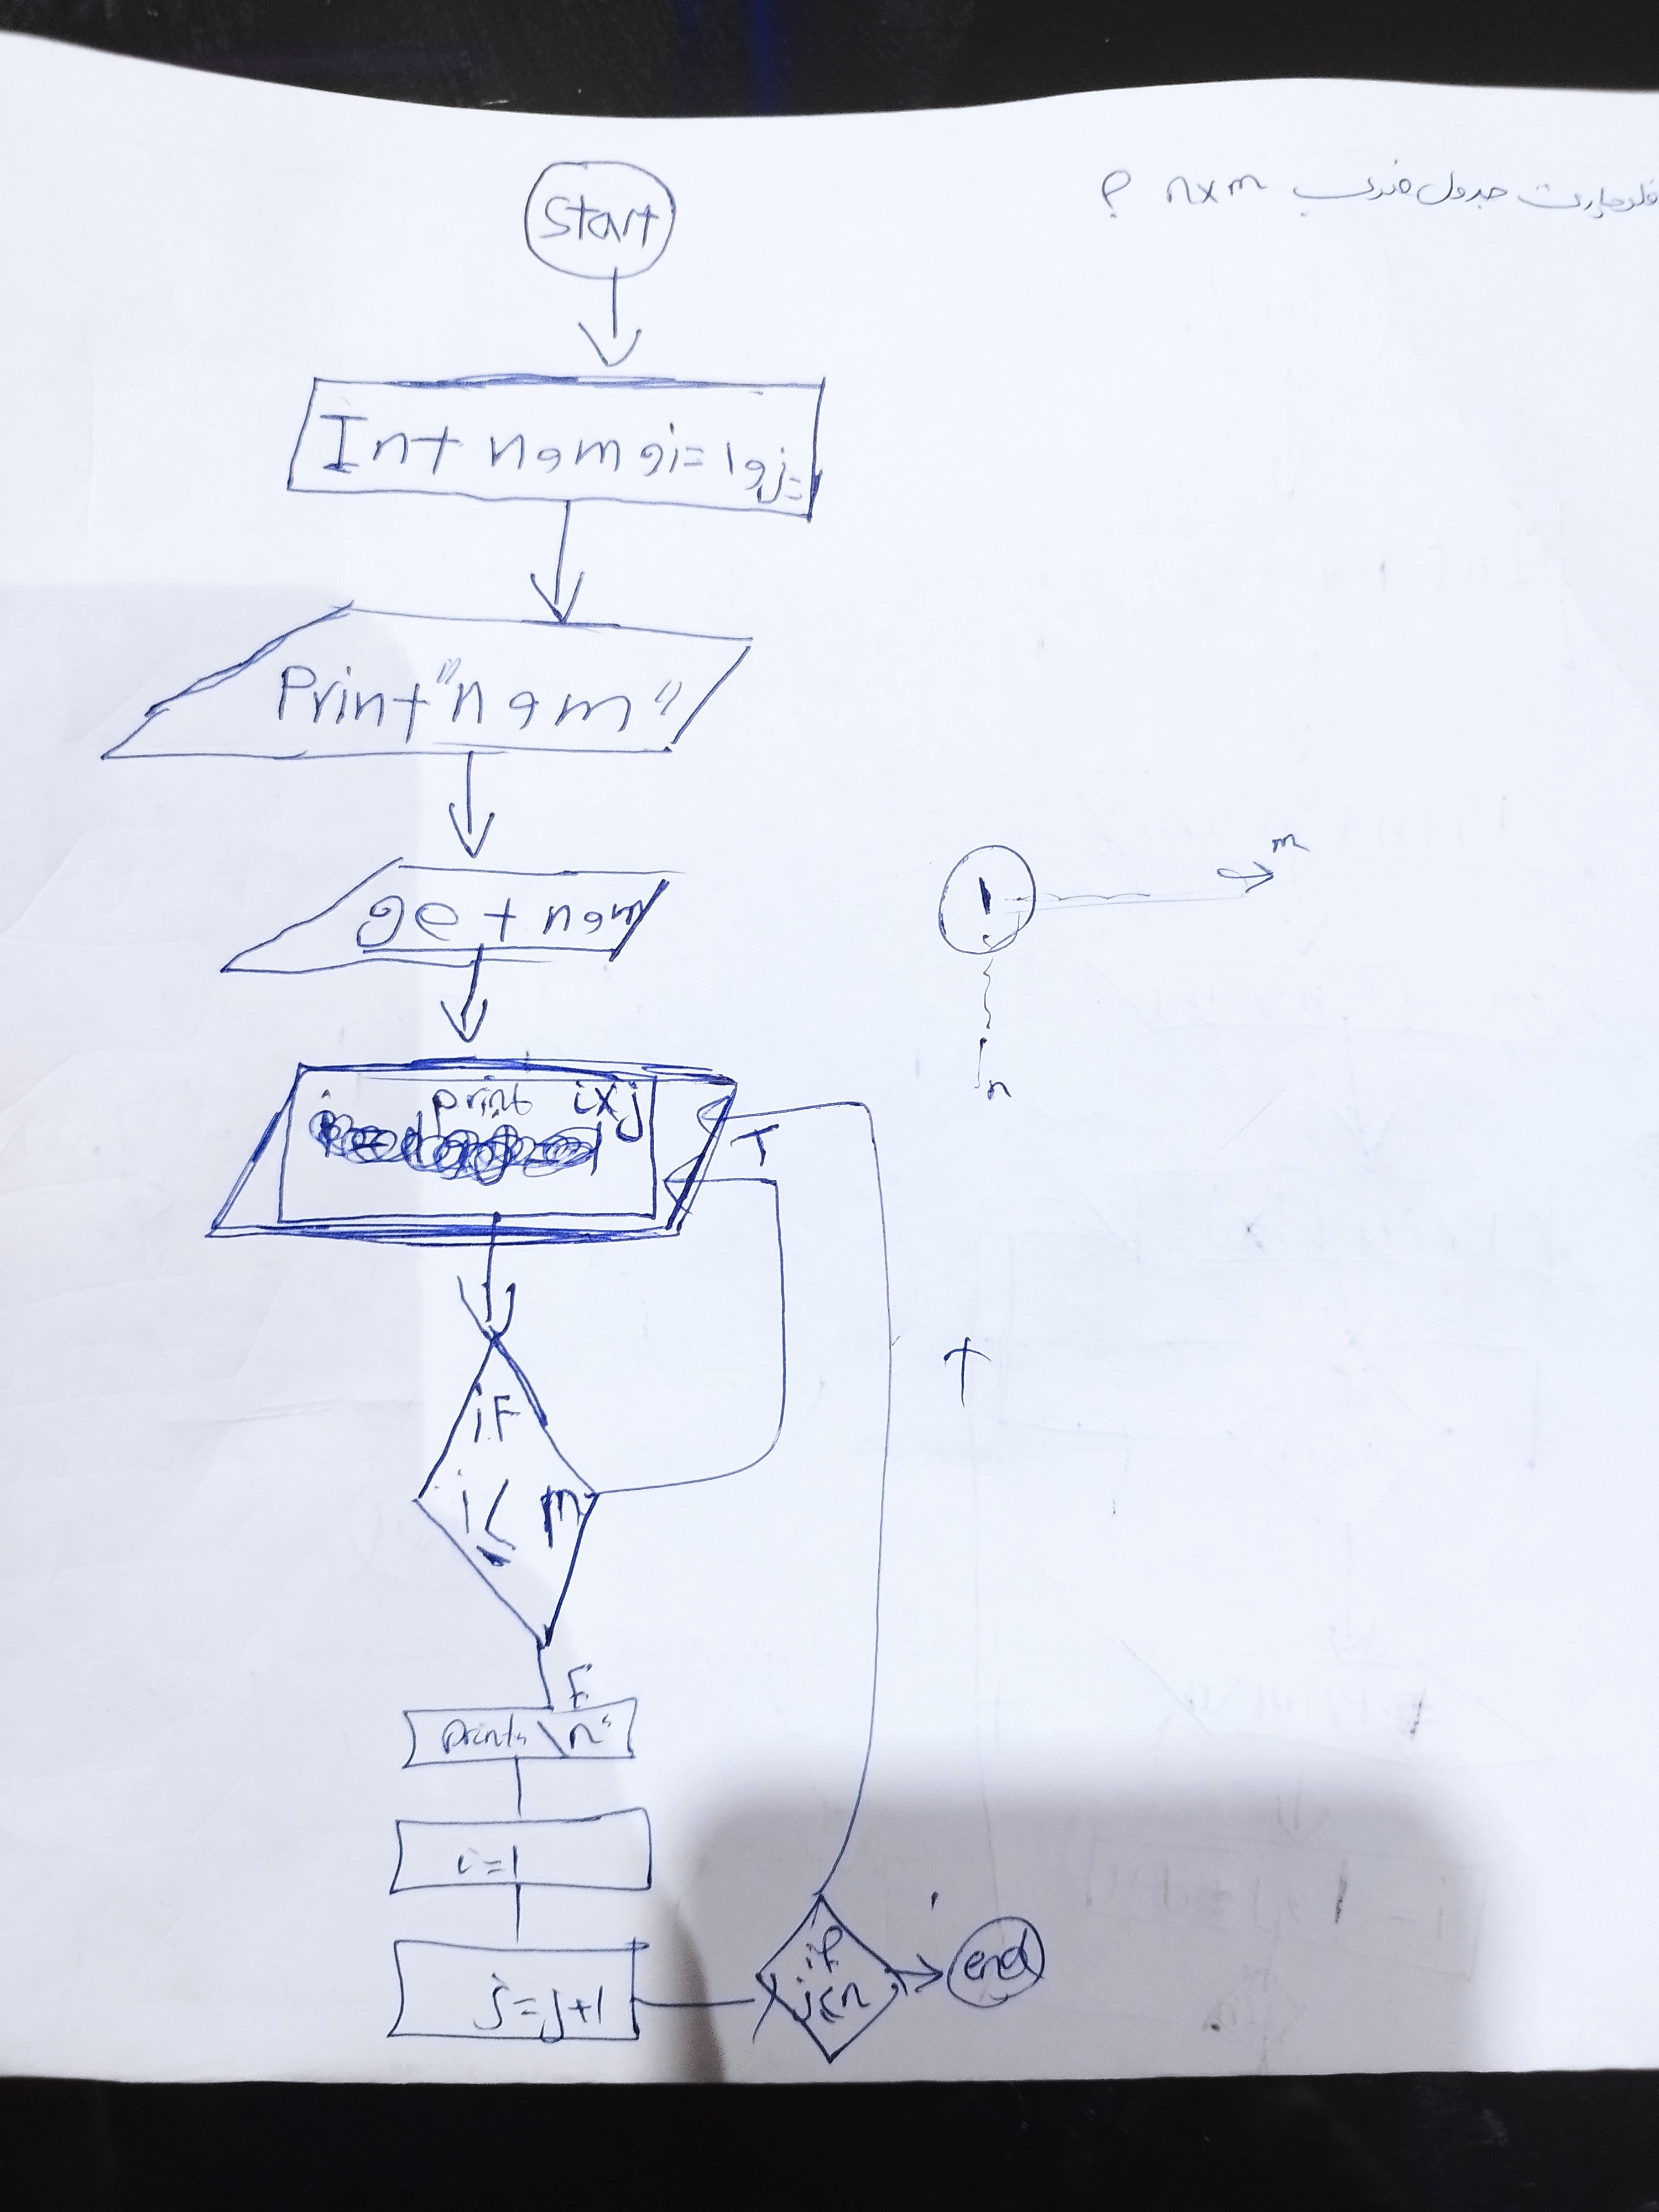 فلوچارت جدول ضرب n×m ؟
Start
Int n,m,i=1,j=
Print "n,m"
get n,m
1
m
n
print i×j
T
if
i≤m
T
F
print "\n"
i=1
j=j+1
if
j≤n
end